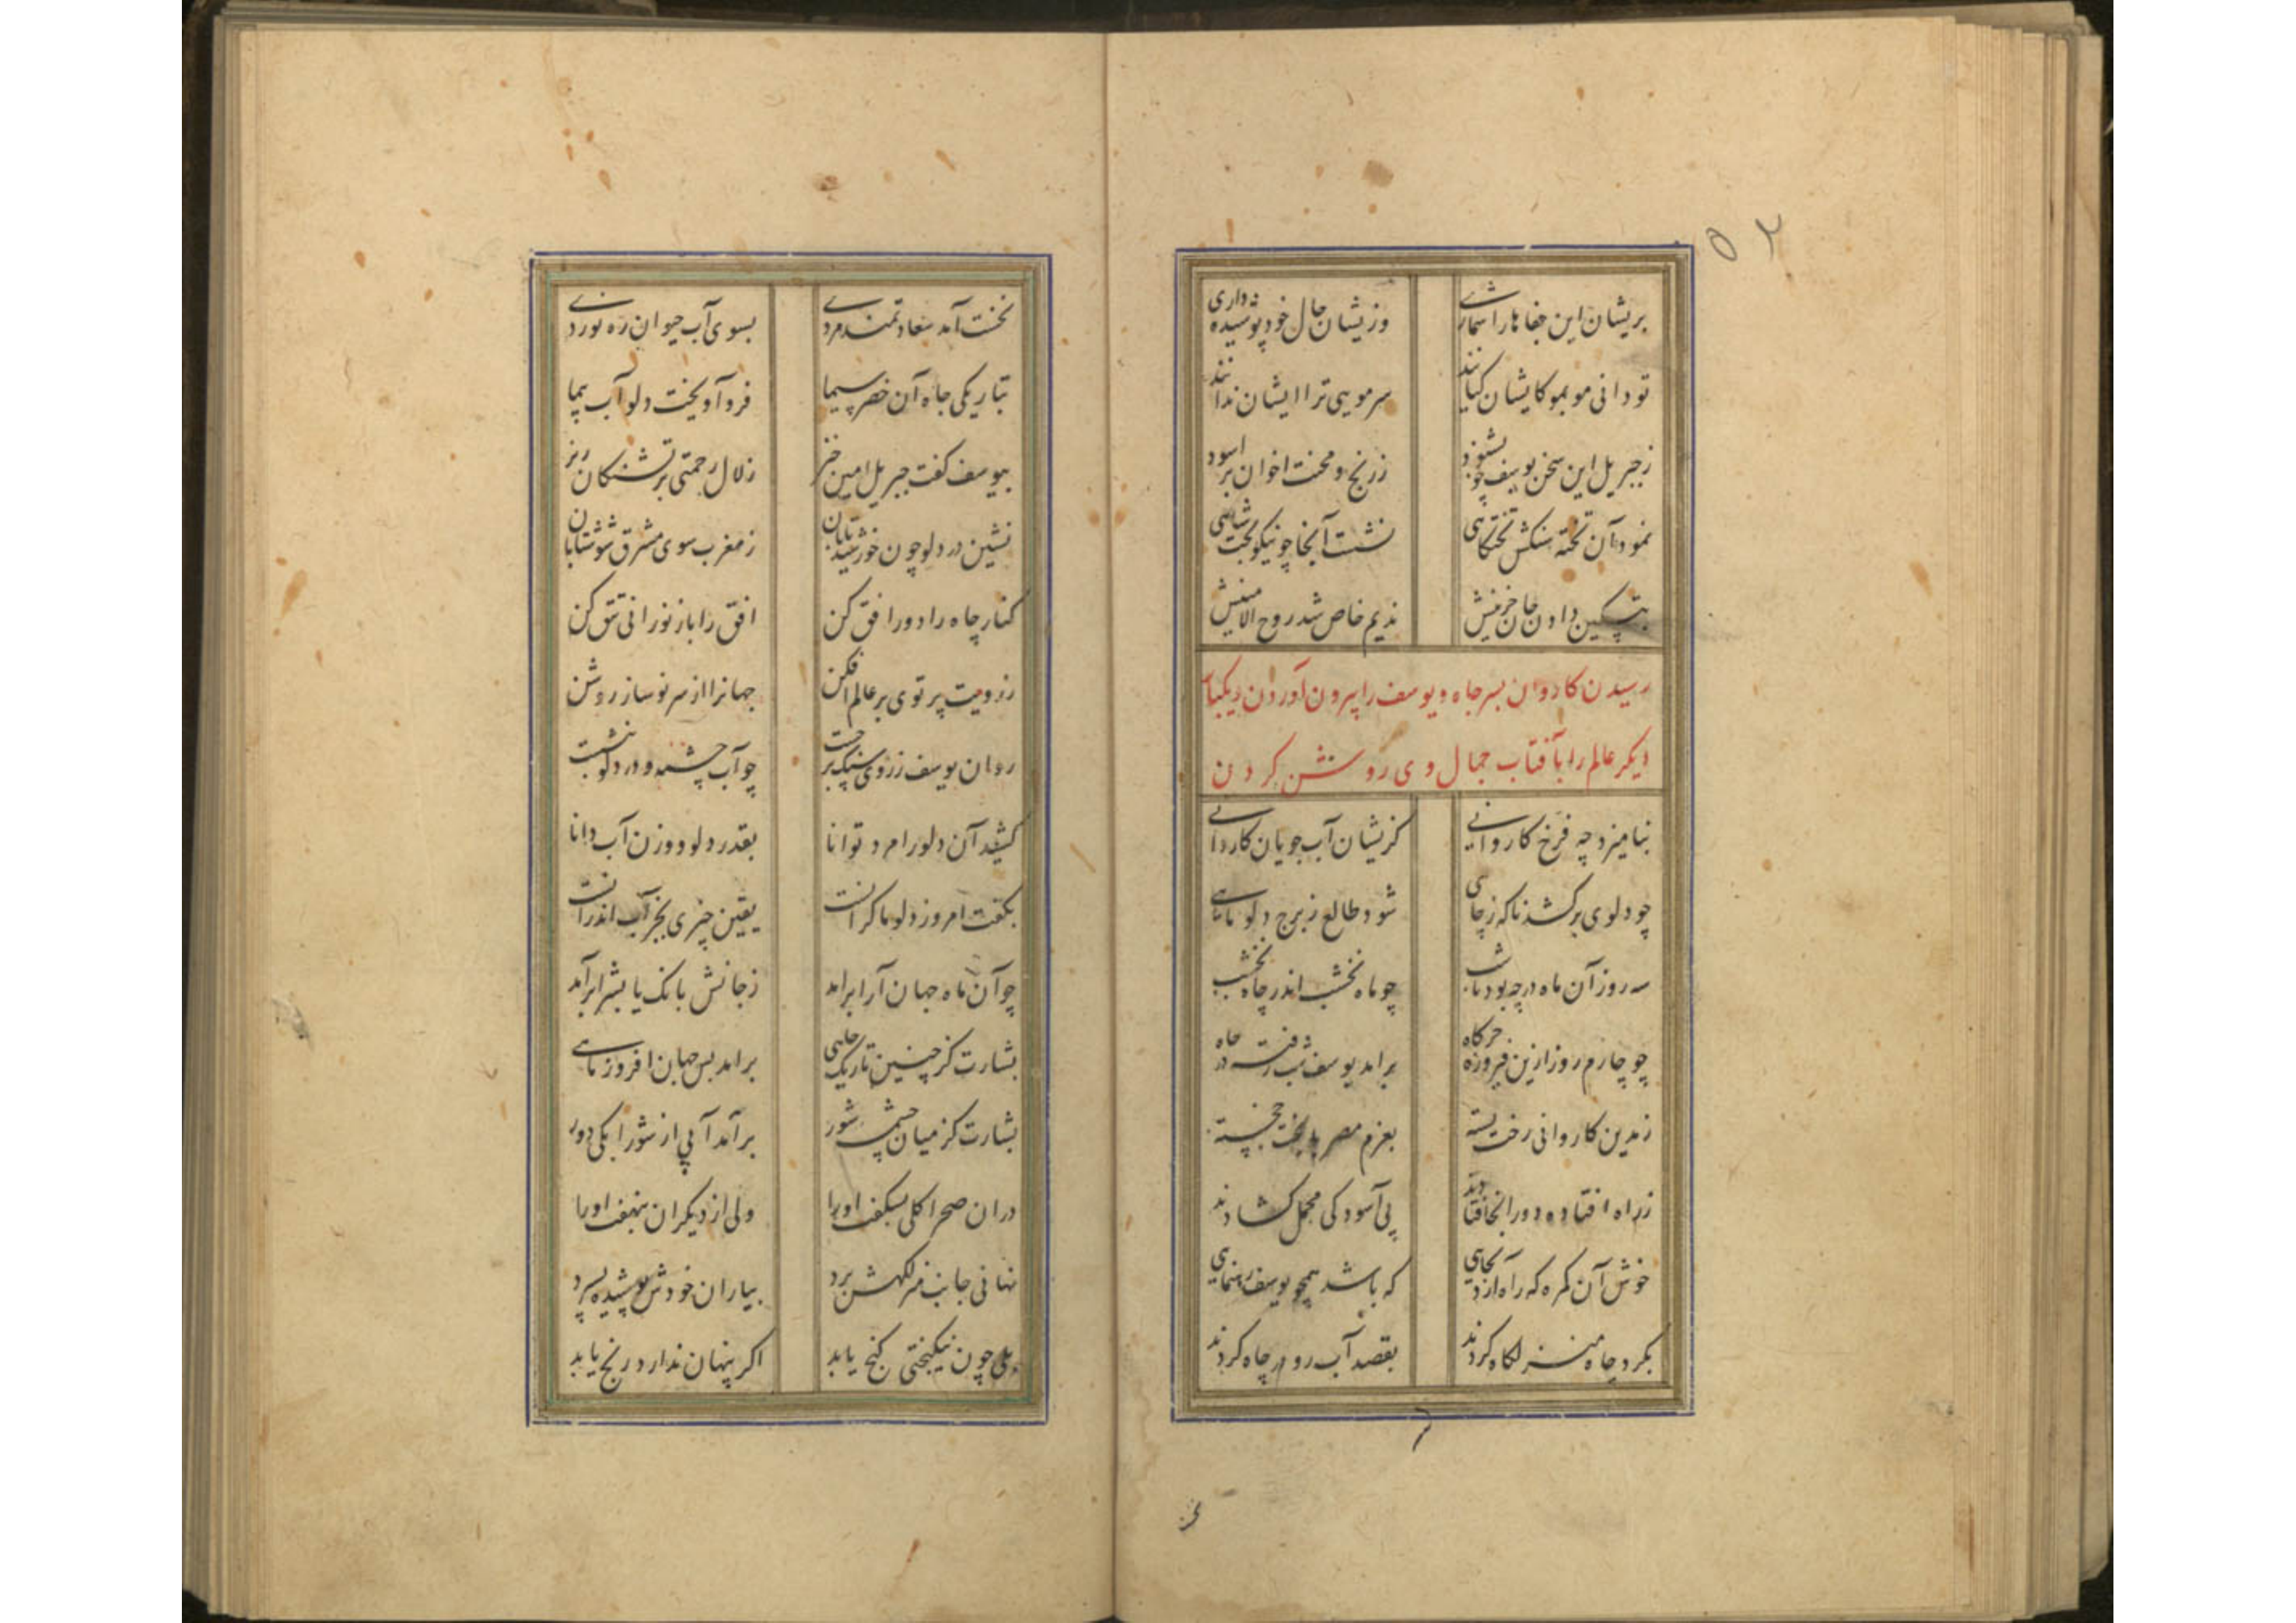 ۵۲
بریشان این جفاها را شماری وزیشان حال خود پوشیده داری
تو دانی مو بمو کایشان کیانند سر مویی ترا ایشان ندانند
ز جبریل این سخن یوسف چو بشنود ز رنج و محنت اخوان بر اسود
نمود آن تخته سنکش تختکاهی نشست آنجا چو نیکوبخت شاهی
بتسکین دادن جان حزینش ندیم خاص شد روح الامینش
رسیدن کاروان بسر چاه و یوسف را بیرون آوردن و یکبار
دیکر عالم را بآفتاب جمال وی روشن کردن
بنامیزد چه فرخ کاروانی کزیشان آب جویان کاردانی
چو دلوی برکشد ناکه ز چاهی شود طالع ز برج دلو ماهی
سه روز آن ماه در چه بود تا شب چو ماه نخشب اندر چاه نخشب
چو چارم روز ازین فیروزه خرکاه برامد یوسف شب رفته در چاه
ز مدین کاروانی رخت بسته بعزم مصر با بخت خجسته
ز راه افتاده دور انجا فتادند پی آسودکی محمل کشادند
خوش آن کمره که راه آرد بجایی که باشد همچو یوسف رهنمایی
بکرد چاه منزلکاه کردند بقصد آب رو در چاه کردند
نخست آمد سعادتمند مردی بسوی آب حیوان ره نوردی
بتاریکی چاه آن خضر سیما فرو آویخت دلو آب پیما
بیوسف کفت جبریل امین خیز زلال رحمتی بر تشنکان ریز
نشین در دلو چون خورشید تابان ز مغرب سوی مشرق شو شتابان
کنار چاه را دور افق کن افق را باز نورانی تتق کن
ز رویت پرتوی بر عالم افکن جهانرا از سر نو ساز روشن
روان یوسف ز روی سنک برجست چو آب چشمه و در دلو بنشست
کشید آن دلو را مرد توانا بقدر دلو و وزن آب دانا
بکفت امروز دلو ما کرانست یقین چیزی بجز آب اندرانست
چو آن ماه جهان آرا برامد ز جانش بانک یا بشرا برآمد
بشارت کز چنین تاریک چاهی برامد بس جهان افروز ماهی
بشارت کز میان چشمه شور برآمد آبی از شورابکی دور
دران صحرا کلی بشکفت اورا ولی از دیکران بنهفت اورا
نهانی جانب منزلکهش برد بیاران خودش پوشیده بسپرد
بلی چون نیکبختی کنج یابد اکر پنهان ندارد رنج یابد